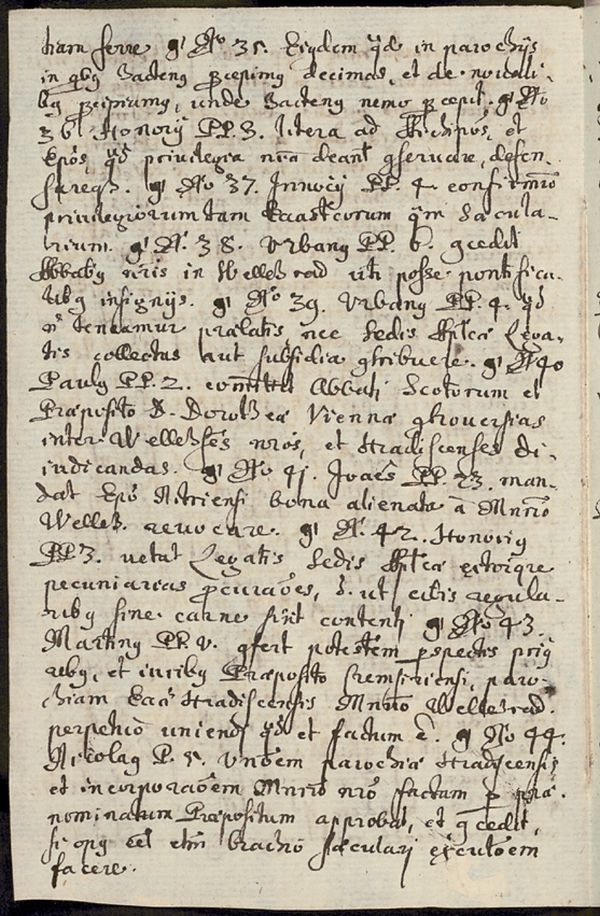 tiam ferre. gͥ No 35. Eiqdem qd in parochijs
in qbg hactenq pcepimq decimas, et de novali-
bq pcipiamq, unde hactenq nemo pcepit. gͥ No
36. Honorij PP. 3. litera ad Archiepos, et
Epos, qd privilegia nra deant gservare, defen-
sareqz. gͥ No 37. Innocij PP. 4. confirmao
privilegiorum tam Ecclasticorum qm Sæcula-
rium. gͥ N. 38. Urbanq PP. 6. gcedit
Abbatibq nris in Wellehrad uti posse pontifica-
libq insignijs. gͥ No 39. Urbanq PP. 4. qd
n teneamur prælatis, nec Sedis Aplcæ Lega-
tis collectas aut subsidia gtribuere. gͥ N 40
Paulq PP. 2. comittit Abbati Scotorum et
Præposito S. Dorotheæ Viennæ gtroversias
inter Wellehses nros, et Hradiscenses di-
iudicandas. gͥ No 41. Joaes PP. 23. man-
dat Epo Nitriensi bona alienata a Mnrio
Welleh. revocare. gͥ N. 42. Honoriq
PP. 3. vetat Legatis Sedis Aplcæ extorqre
pecuniarias pcuraoes, s. ut cibis regula-
ribq sine carne sint contenti, gͥ No 43.
Martinq PP. V. gfert potestem pspectis priq
rebq, et iuribq Præposito Cremsiriensi, paro-
chiam Eccæ Hradiscensis Mnrio Wellehrad.
perpetuo uniendi qd et factum e. gͥ No 44.
Nicolaq P. 5. Unioem parochiæ Hradiscensis
et incorporaoem Mnrio nro factam p præ-
nominatum Præpositum approbat, et gcedit,
si opq eet etm brachio sæculari executoem
facere.